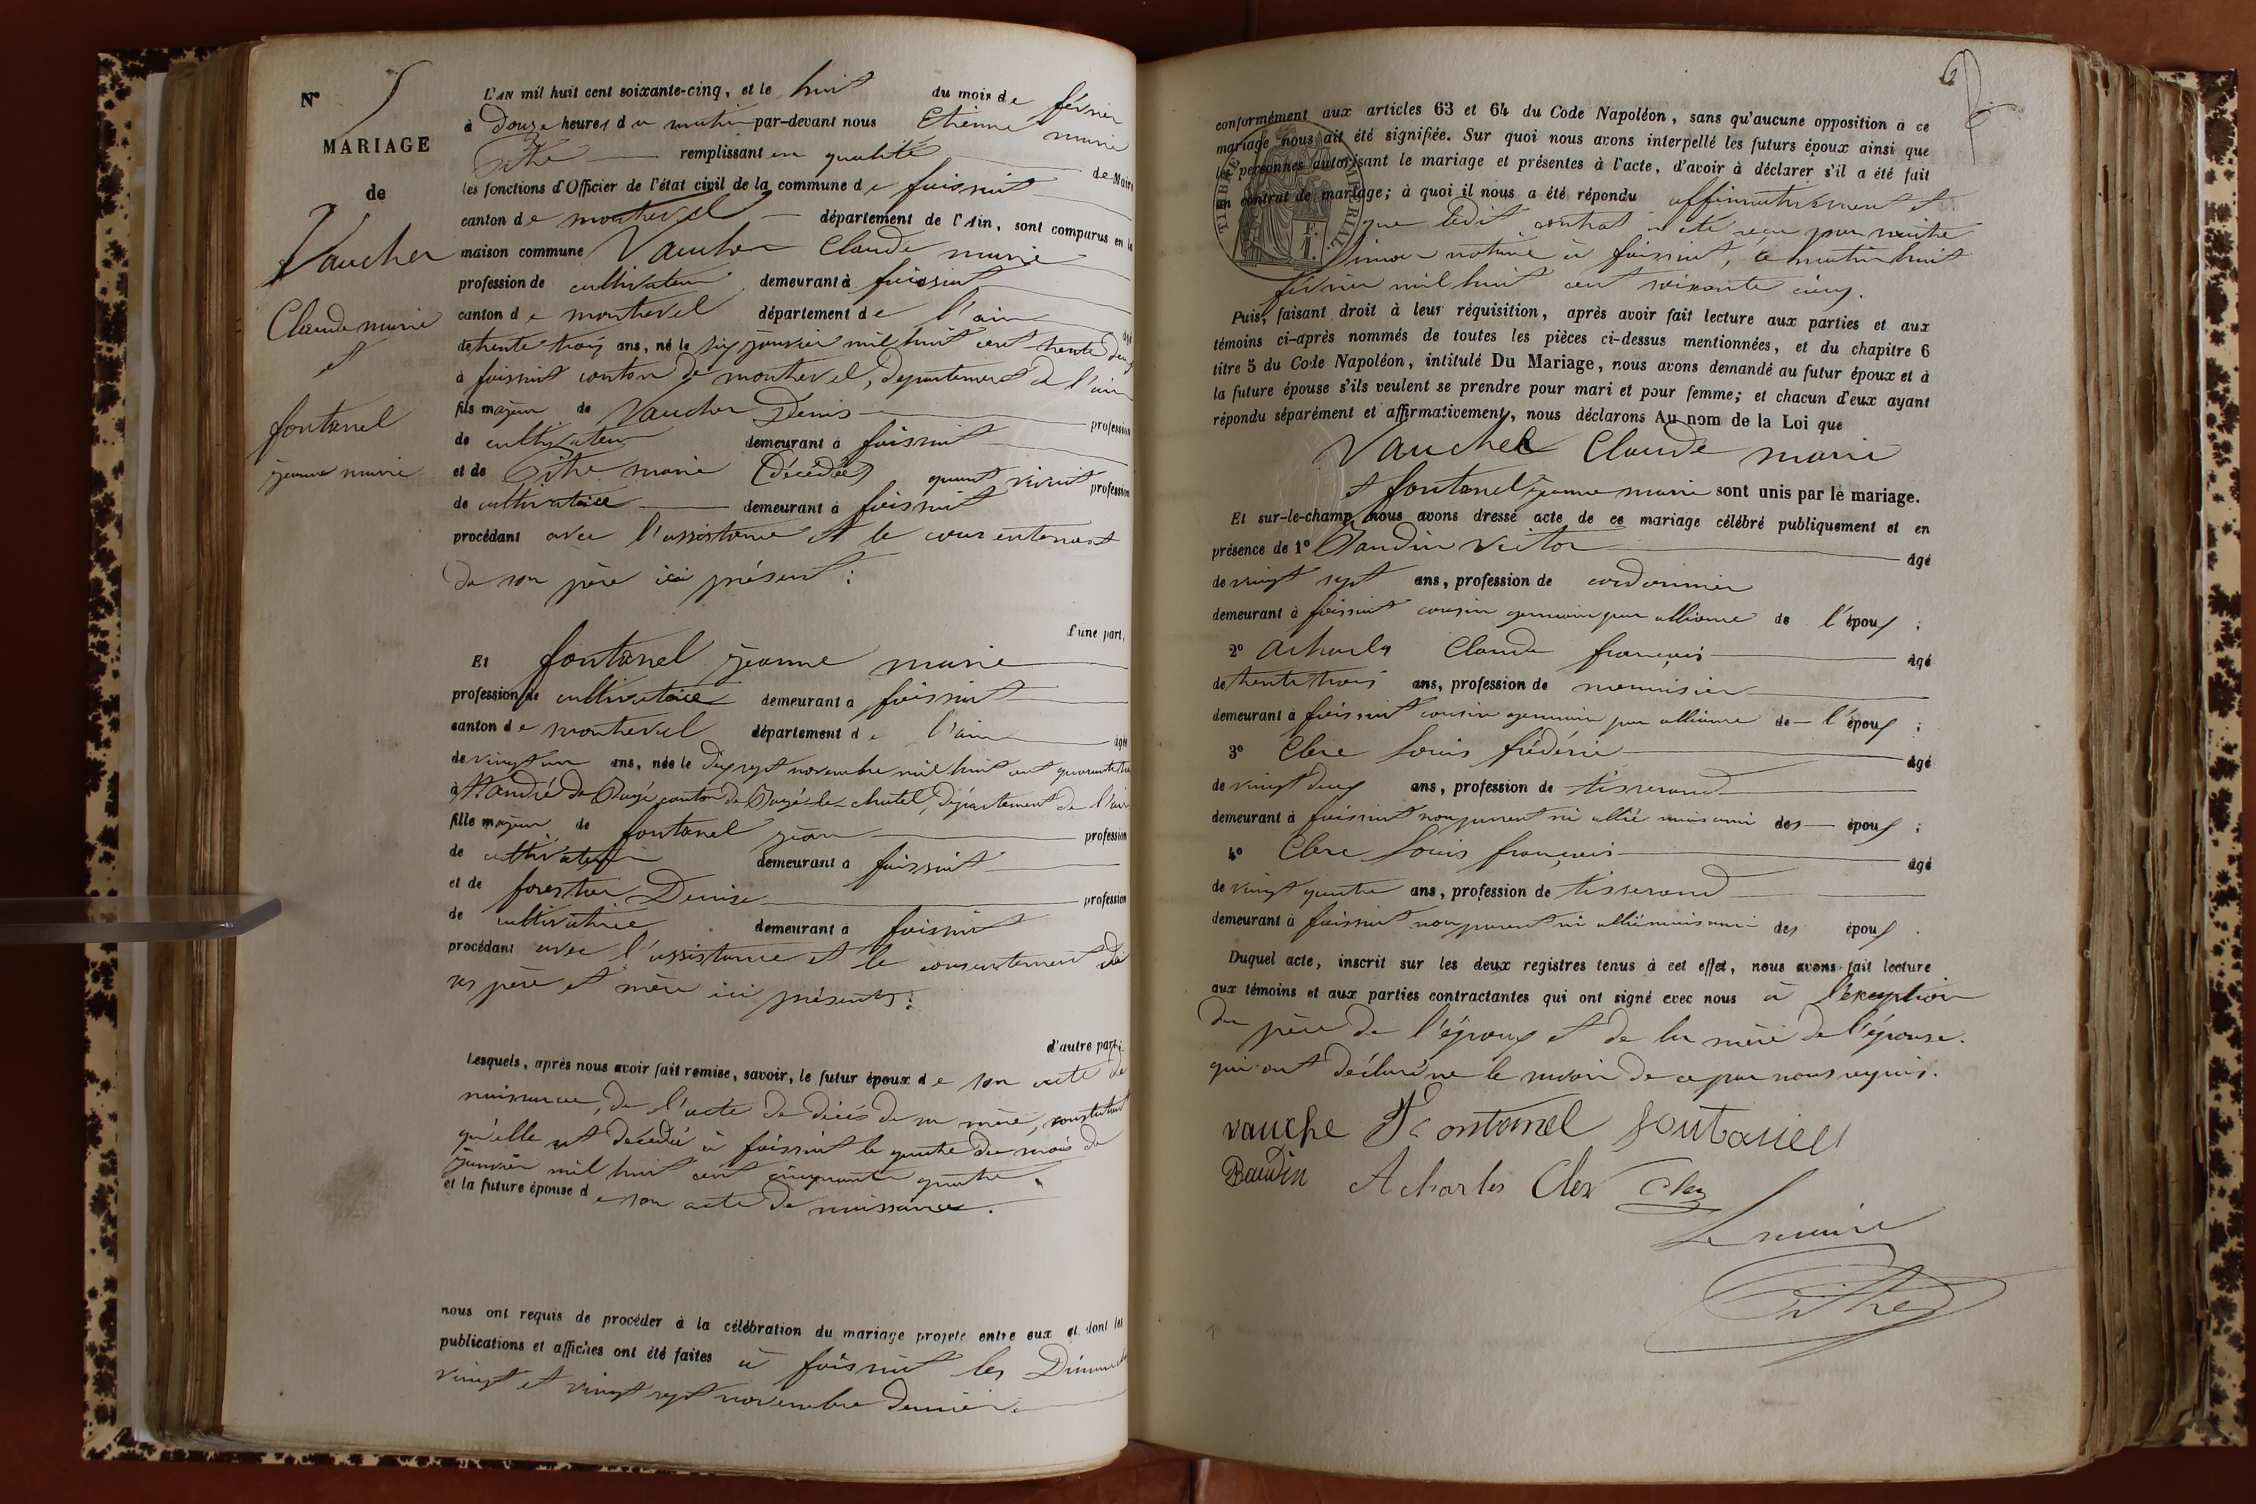 N° 5
MARIAGE
de
Vaucher
Claude marie
et
fontanel
jeanne marie
L'AN mil huit cent soixante-cinq, et le huit du mois de février
à Douze heures du matin par-devant nous Etienne marie
remplissant en qualité de Maire
les fonctions d'Officier de l'état civil de la commune de foissiat
canton de montrevel département de l'Ain, sont comparus en la
maison commune Vaucher Claude marie
profession de cultivateur demeurant à foissiat
canton de montrevel département de l'ain âgé
de trente trois ans, né le six janvier mil huit cent trente deux
à foissiat canton de montrevel, département de l'ain
fils majeur de Vaucher Denis profession
de cultivateur demeurant à foissiat
et de marie (décédée) quant vivait profession
de cultivatrice demeurant à foissiat
procédant avec l'assistance et le consentement
de son père ici présent :
d'une part,
Et fontanel jeanne marie
profession de cultivatrice demeurant à foissiat
canton de montrevel département de l'ain âgée
de vingt un ans, née le dix sept novembre mil huit cent quarante trois
à St andré de Bagé canton de Bagé-le-chatel, département de l'ain
fille majeur de fontanel jean profession
de cultivateur demeurant à foissiat
et de forestier Denise profession
de cultivatrice demeurant à foissiat
procédant avec l'assistance et le consentement de
ses père et mère ici présents :
d'autre part;
Lesquels, après nous avoir fait remise, savoir, le futur époux de son acte de
naissance, de l'acte de décès de sa mère, constatant
qu'elle est décédée à foissiat le quatre du mois de
janvier mil huit cent cinquante quatre
et la future épouse de son acte de naissance.
nous ont requis de procéder à la célébration du mariage projeté entre eux et dont les
publications et affiches ont été faites à foissiat les Dimanches
vingt et vingt sept novembre dernier.
conformément aux articles 63 et 64 du Code Napoléon, sans qu'aucune opposition à ce
mariage nous ait été signifiée. Sur quoi nous avons interpellé les futurs époux ainsi que
les personnes autorisant le mariage et présentes à l'acte, d'avoir à déclarer s'il a été fait
un contrat de mariage; à quoi il nous a été répondu affirmativement et
que ledit contrat a été reçu par maitre
notaire à foissiat, ce matin huit
février mil huit cent soixante cinq.
TIMBRE IMPÉRIAL.
Puis, faisant droit à leur réquisition, après avoir fait lecture aux parties et aux
témoins ci-après nommés de toutes les pièces ci-dessus mentionnées, et du chapitre 6
titre 5 du Code Napoléon, intitulé Du Mariage, nous avons demandé au futur époux et à
la future épouse s'ils veulent se prendre pour mari et pour femme; et chacun d'eux ayant
répondu séparément et affirmativement, nous déclarons Au nom de la Loi que
Vaucher Claude marie
et fontanel jeanne marie sont unis par le mariage.
Et sur-le-champ nous avons dressé acte de ce mariage célébré publiquement et en
présence de 1° Baudin victor âgé
de vingt sept ans, profession de cordonnier
demeurant à foissiat cousin germain par alliance de l'époux ;
2° Acharles Claude françois âgé
de trente trois ans, profession de menuisier
demeurant à foissiat cousin germain par alliance de l'époux ;
3° Clerc Louis frédéric âgé
de vingt deux ans, profession de tisserand
demeurant à foissiat non parent ni allié mais ami des époux ;
4° Clerc Louis françois âgé
de vingt quatre ans, profession de tisserand
demeurant à foissiat non parent ni allié mais ami des époux .
Duquel acte, inscrit sur les deux registres tenus à cet effet, nous avons fait lecture
aux témoins et aux parties contractantes qui ont signé avec nous à l'exception
du père de l'époux et de la mère de l'épouse.
qui ont déclaré ne le savoir de ce par nous requis.
vauche Fontanel fontanel
Baudin Acharles Clerc Clerc
Le maire